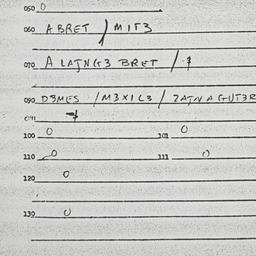 050 0
060 ABRET / MIT3
070 A LAJNG3 BRET / .
090 D3MES / M3XIC3 /
091
100 0 101 0
110 0 111 0
120 0
130 0